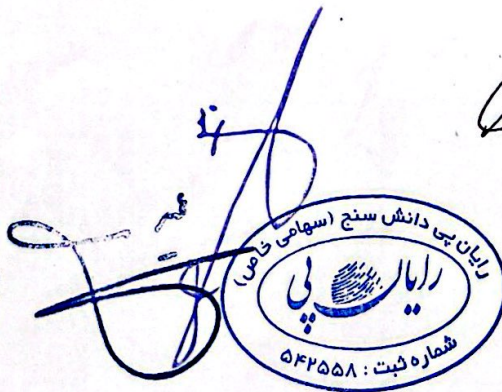 رایان پی دانش سنج (سهامی خاص)
رایان پی
شماره ثبت : ۵۴۲۵۵۸